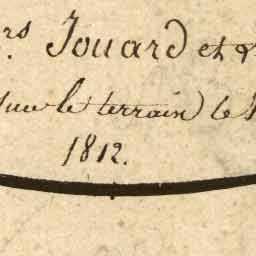 rs Jouard et
sur le terrain le
1812.